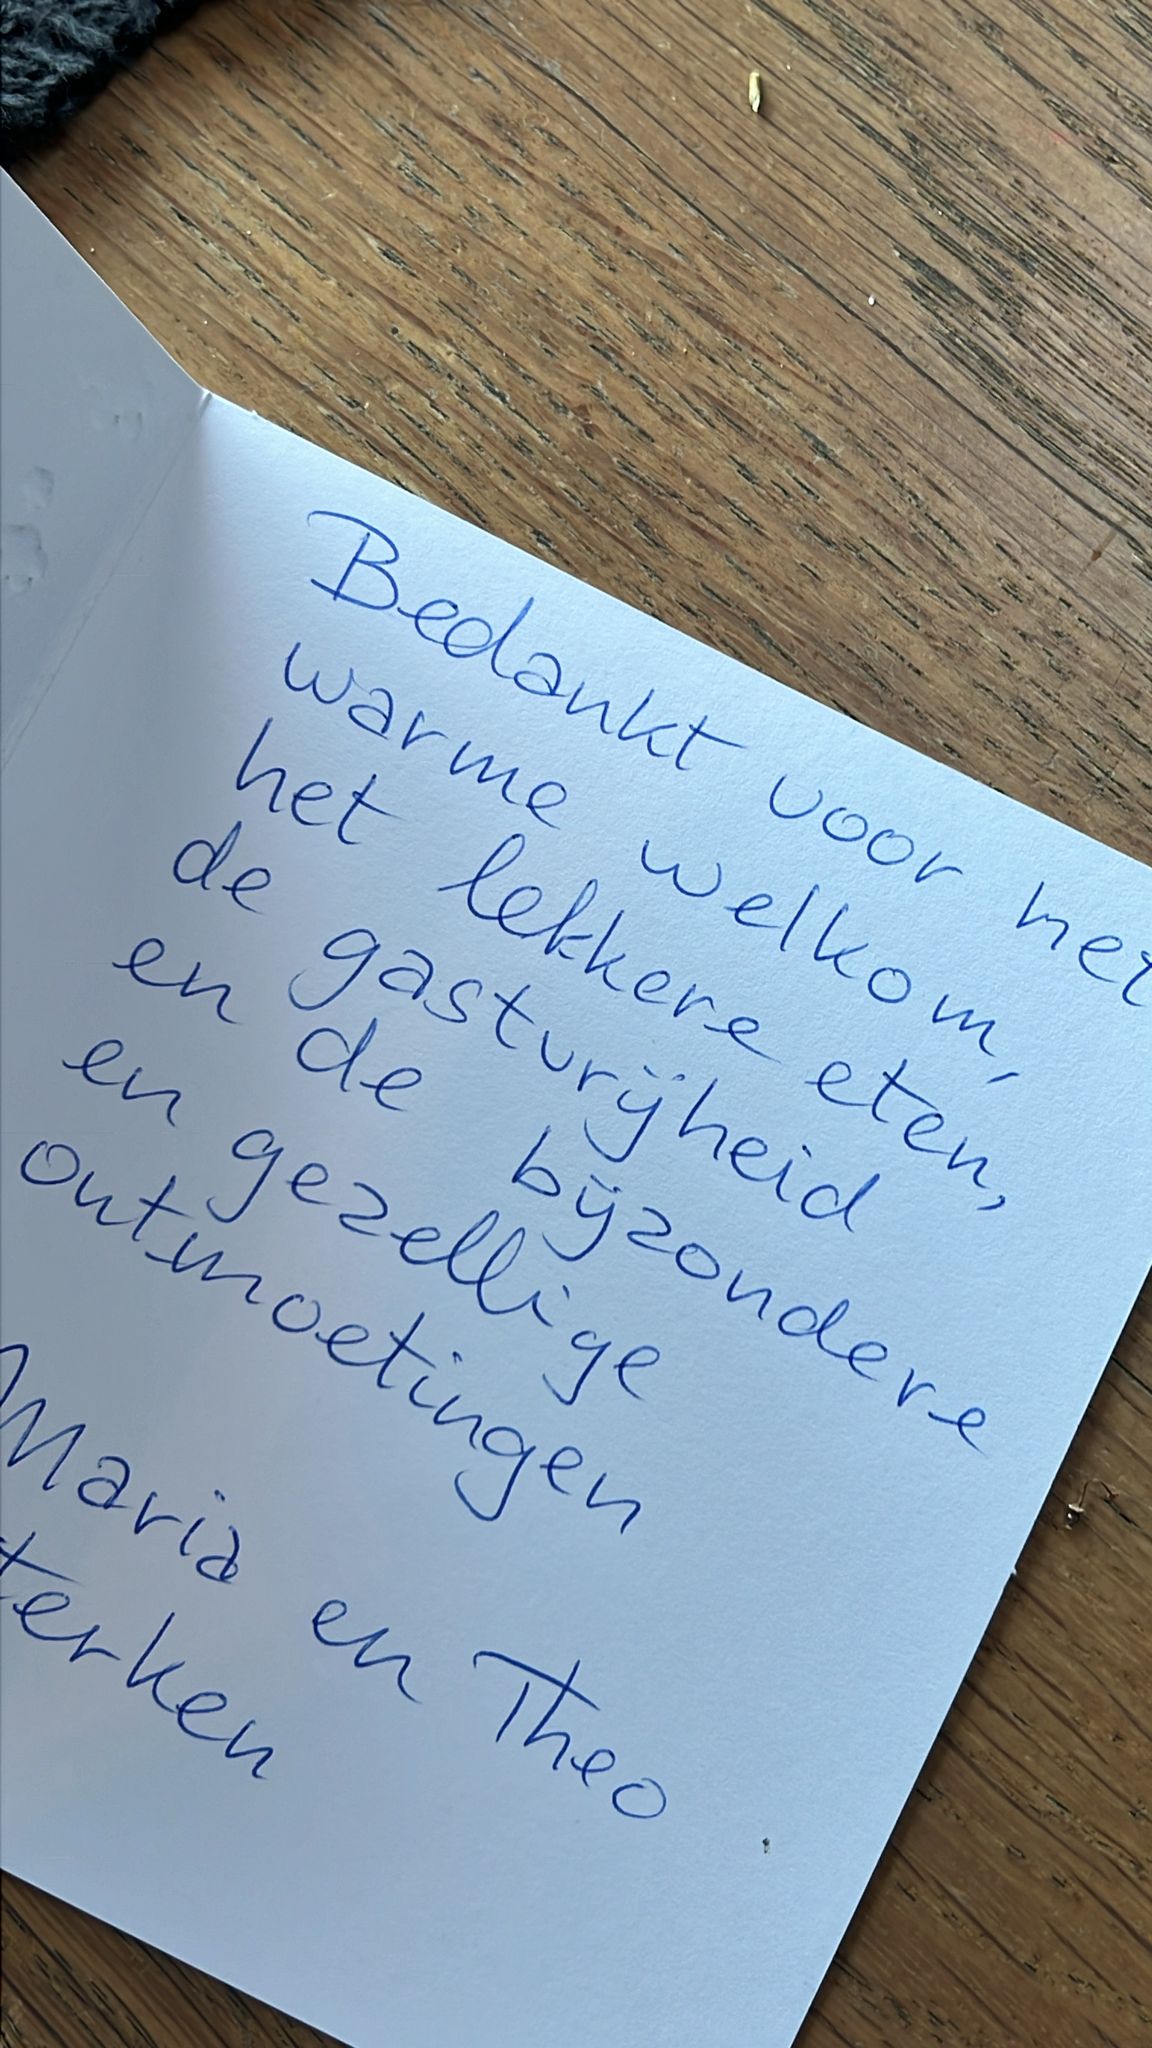 Bedankt voor het
warme welkom,
het lekkere eten,
de gastvrijheid
en de bijzondere
en gezellige
ontmoetingen
Maria en Theo
terken